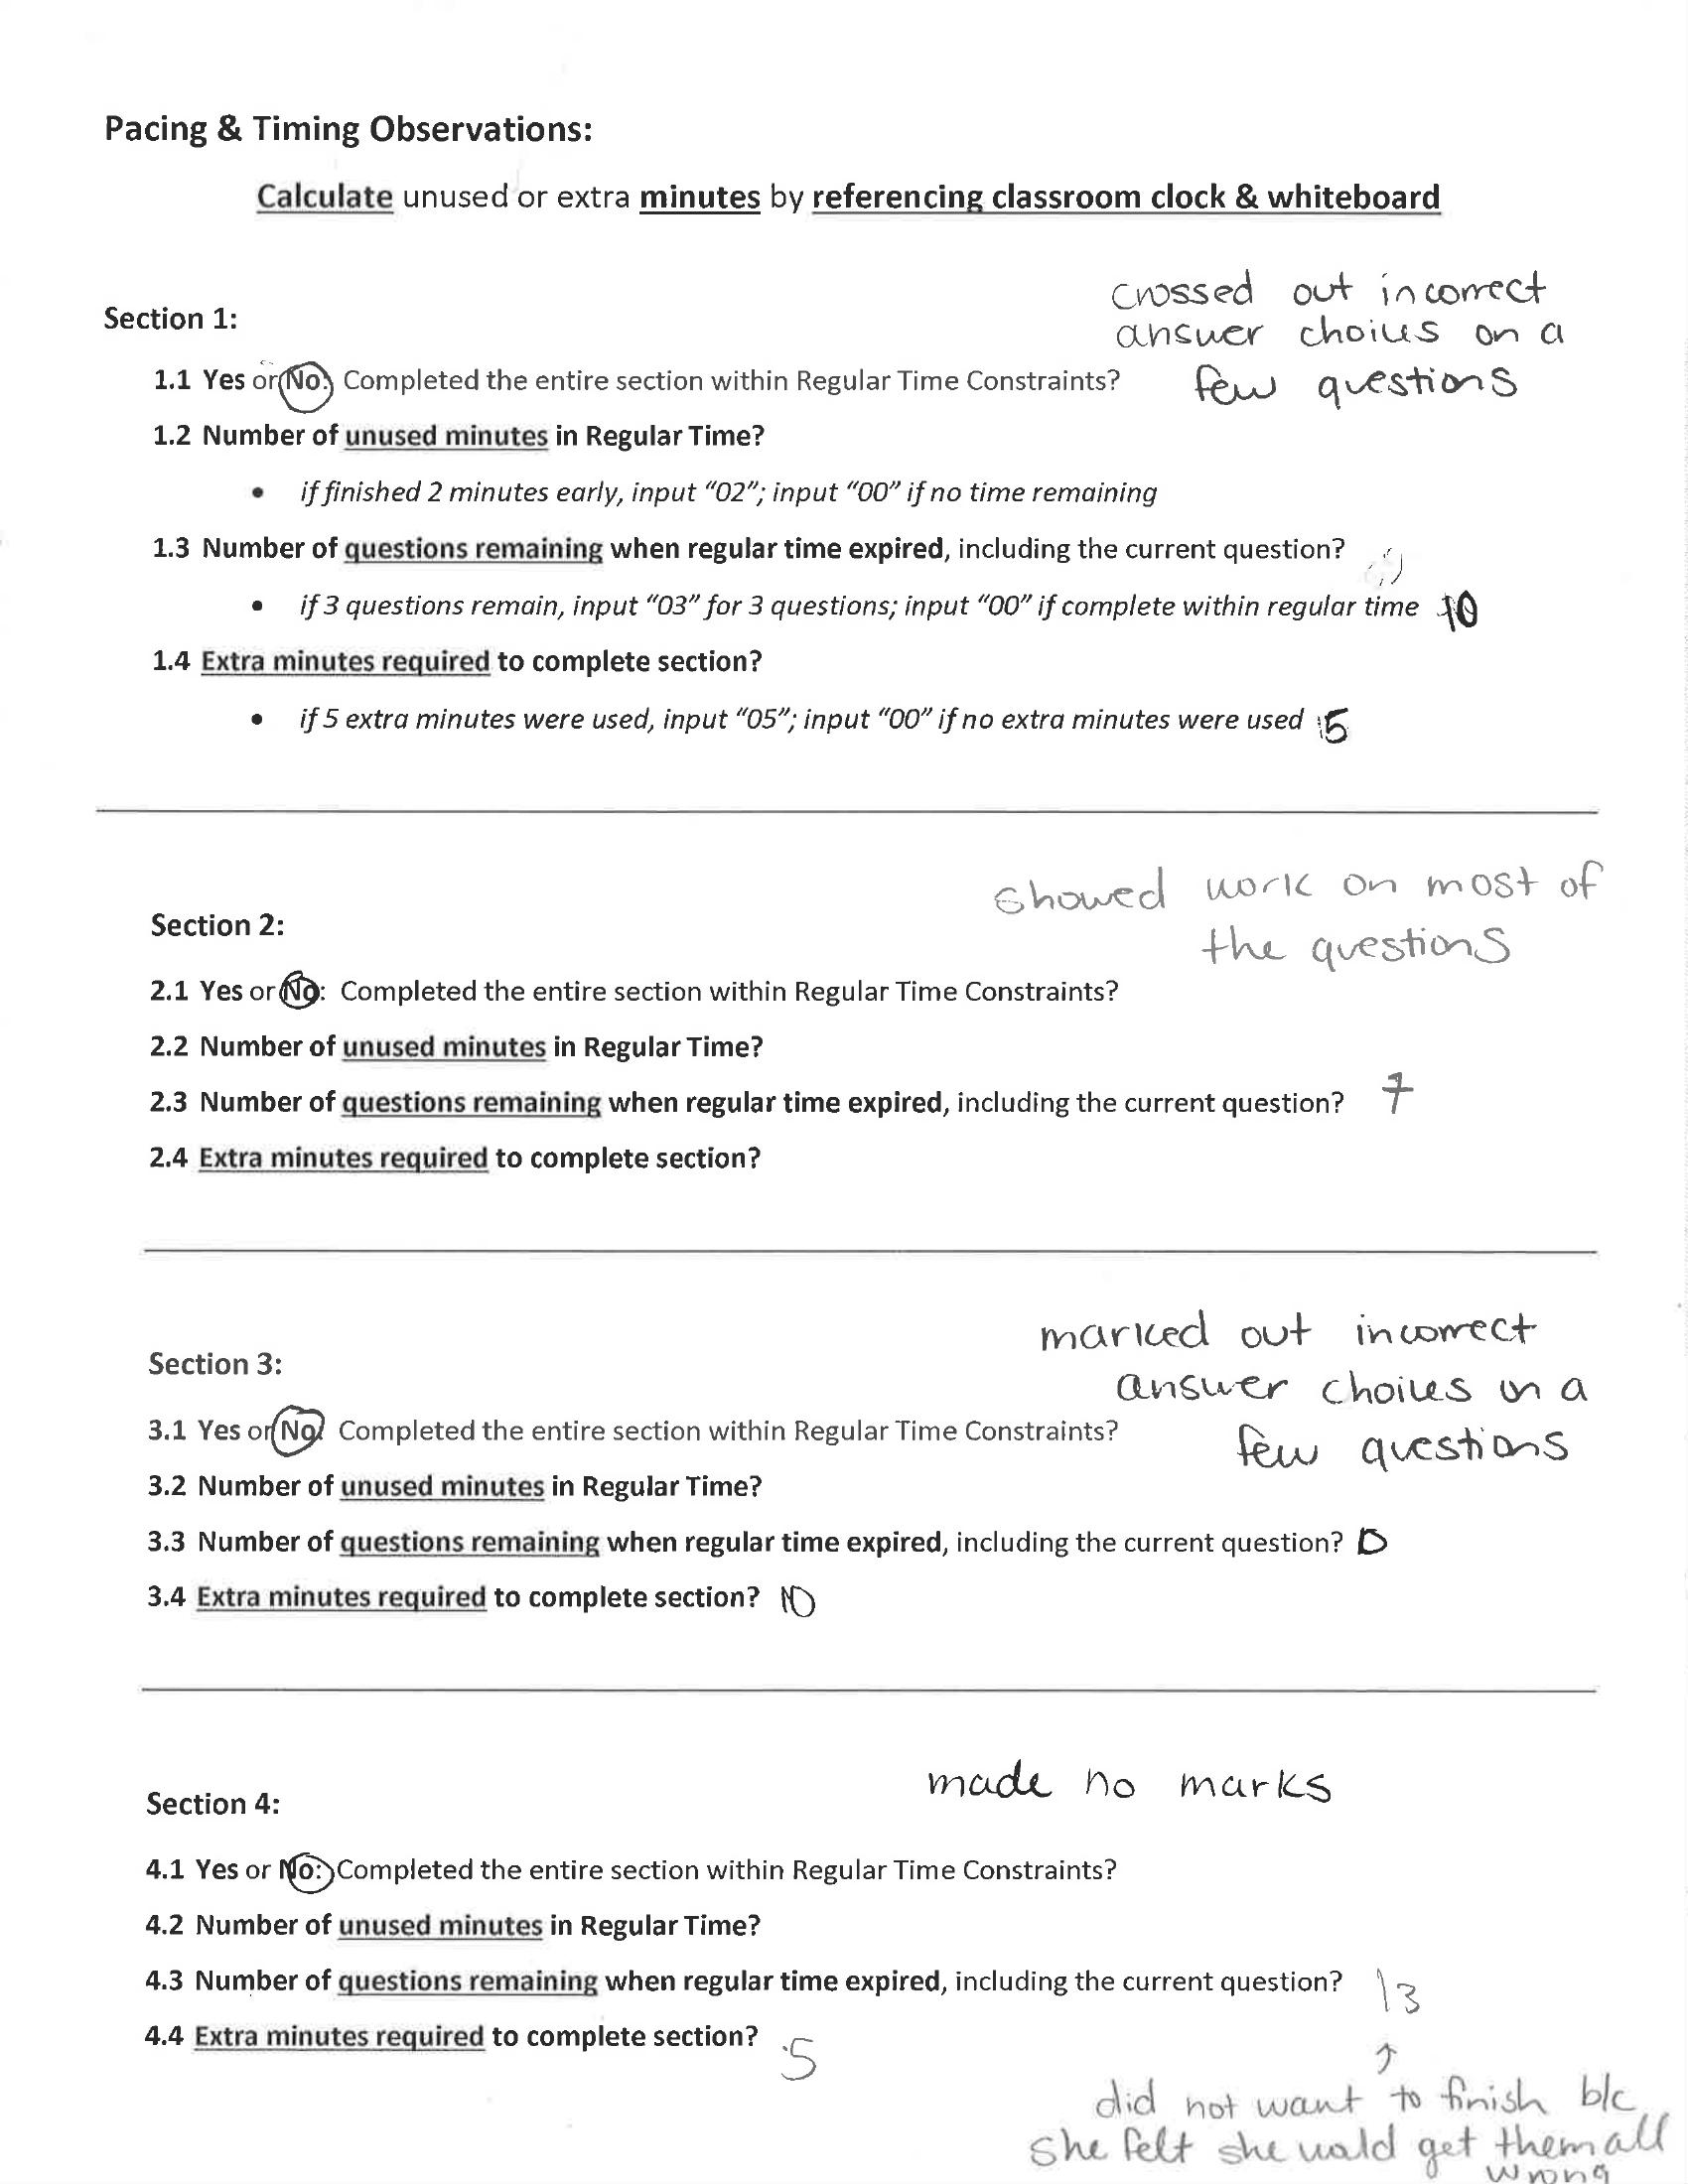 Pacing & Timing Observations:
Calculate unused or extra minutes by referencing classroom clock & whiteboard
crossed out incorrect
answer choices on a
few questions
Section 1:
1.1 Yes or No: Completed the entire section within Regular Time Constraints?
1.2 Number of unused minutes in Regular Time?
• if finished 2 minutes early, input “02”; input “00” if no time remaining
1.3 Number of questions remaining when regular time expired, including the current question?
• if 3 questions remain, input “03” for 3 questions; input “00” if complete within regular time 10
1.4 Extra minutes required to complete section?
• if 5 extra minutes were used, input “05”; input “00” if no extra minutes were used 5
showed work on most of
the questions
Section 2:
2.1 Yes or No: Completed the entire section within Regular Time Constraints?
2.2 Number of unused minutes in Regular Time?
2.3 Number of questions remaining when regular time expired, including the current question? 7
2.4 Extra minutes required to complete section?
marked out incorrect
answer choices on a
few questions
Section 3:
3.1 Yes or No: Completed the entire section within Regular Time Constraints?
3.2 Number of unused minutes in Regular Time?
3.3 Number of questions remaining when regular time expired, including the current question? 0
3.4 Extra minutes required to complete section? 10
made no marks
Section 4:
4.1 Yes or No: Completed the entire section within Regular Time Constraints?
4.2 Number of unused minutes in Regular Time?
4.3 Number of questions remaining when regular time expired, including the current question? 13
4.4 Extra minutes required to complete section? 5
did not want to finish b/c
she felt she would get them all
wrong